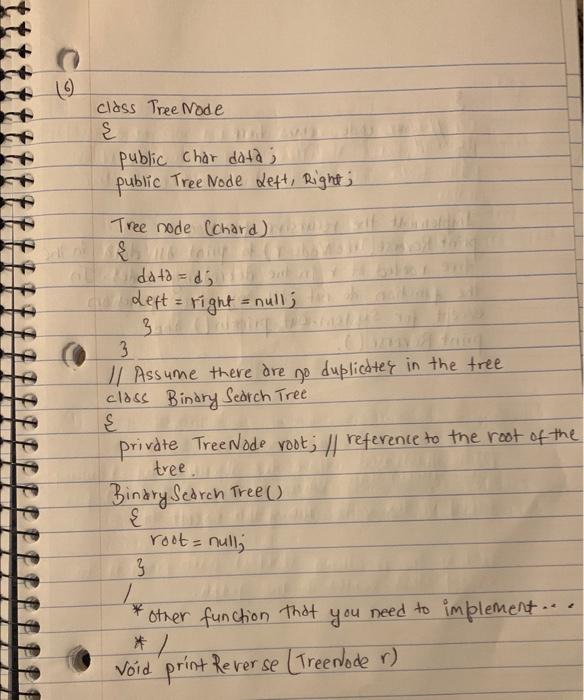 (6)
class TreeNode
{
public char data;
public TreeNode left, Right;
Tree node (chard)
{
data = d;
left = right = null;
}
}
// Assume there are no duplicates in the tree
class Binary Search Tree
{
private TreeNode root; // reference to the root of the
tree.
Binary Search Tree()
{
root = null;
}
/
* other function that you need to implement...
* /
void print Reverse (Treenode r)